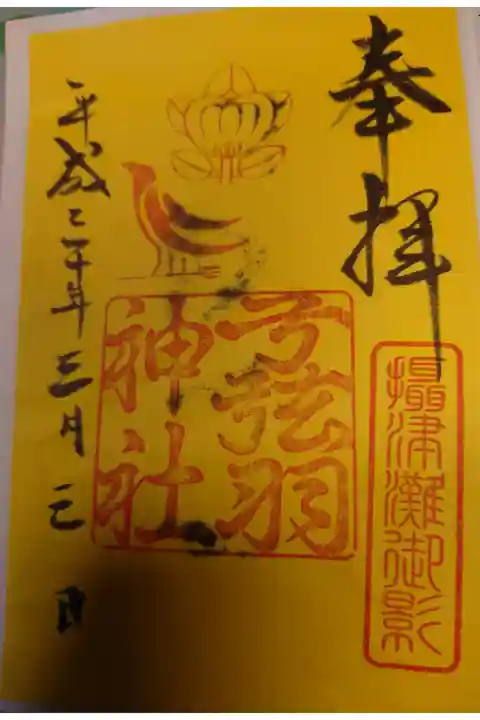 奉拝
攝津灘御影
弓弦羽
神社
平成二十年三月三日